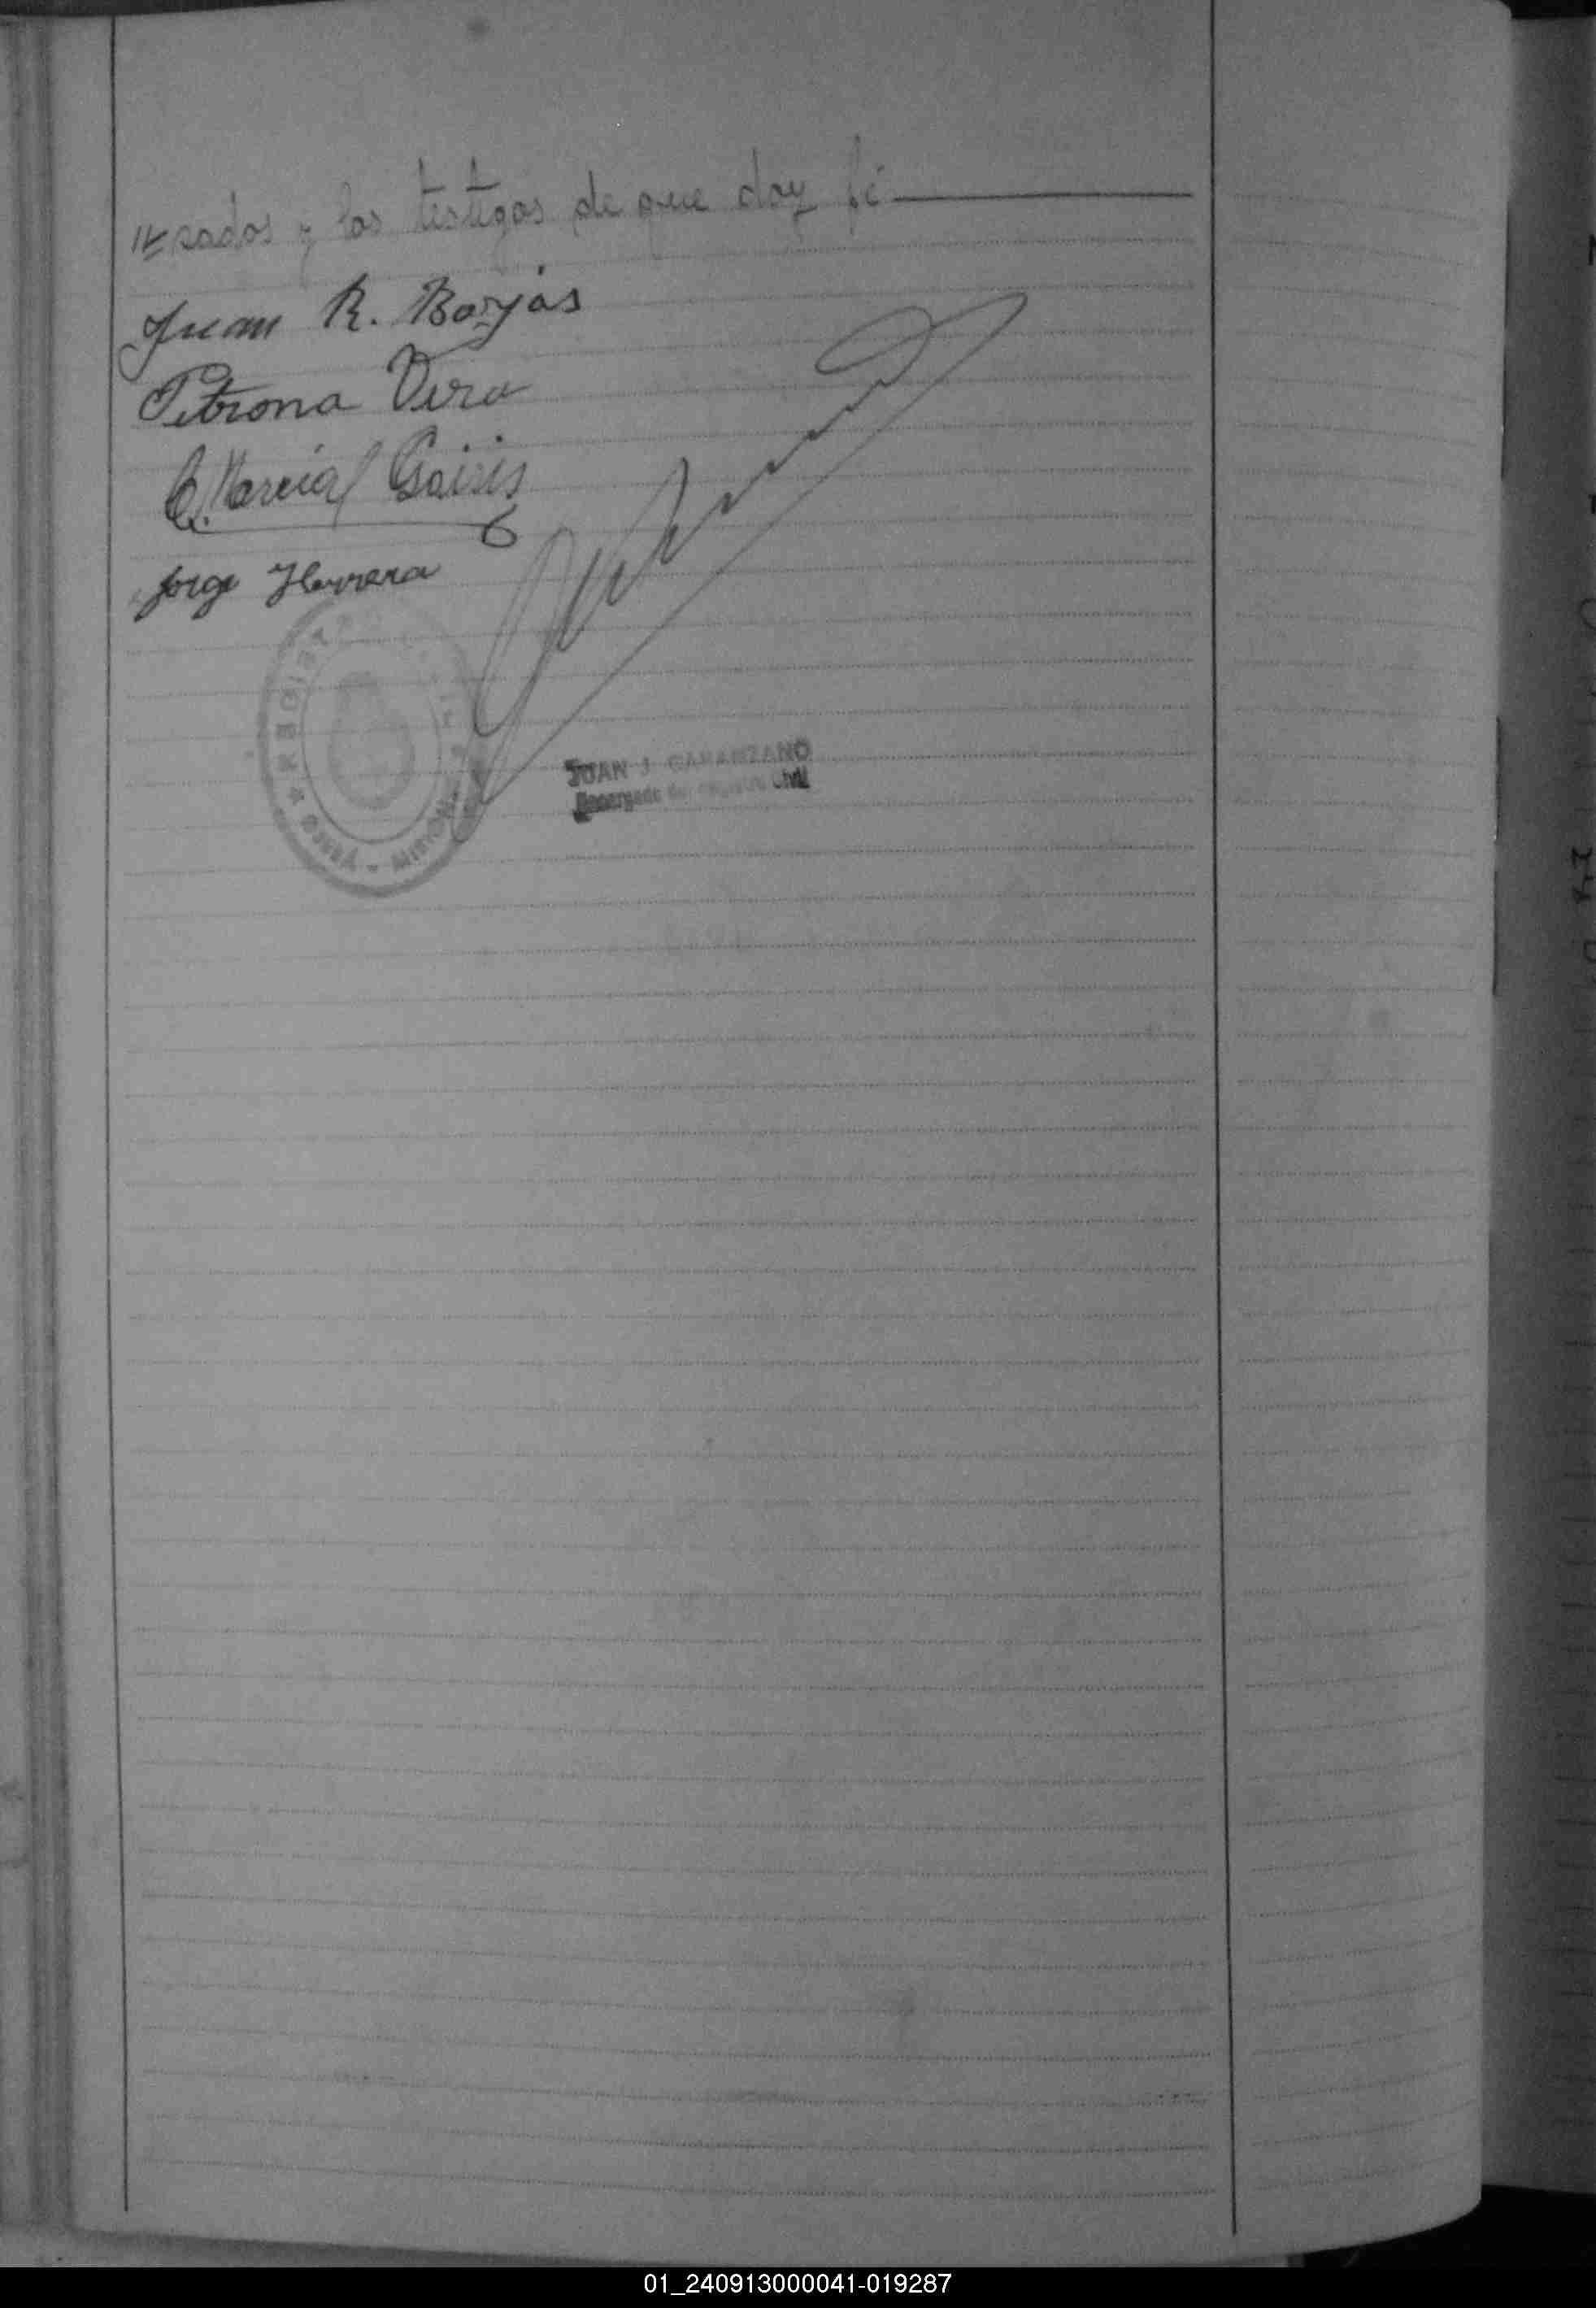 resados y los testigos de que doy fé
Juan R. Borjas
Petrona Vera
C. Marcial
Jorge Herrera
REGISTR
OBERÁ - MISIONES
JUAN J. GARANZANO
Encargado del registro Civil
01_240913000041-019287